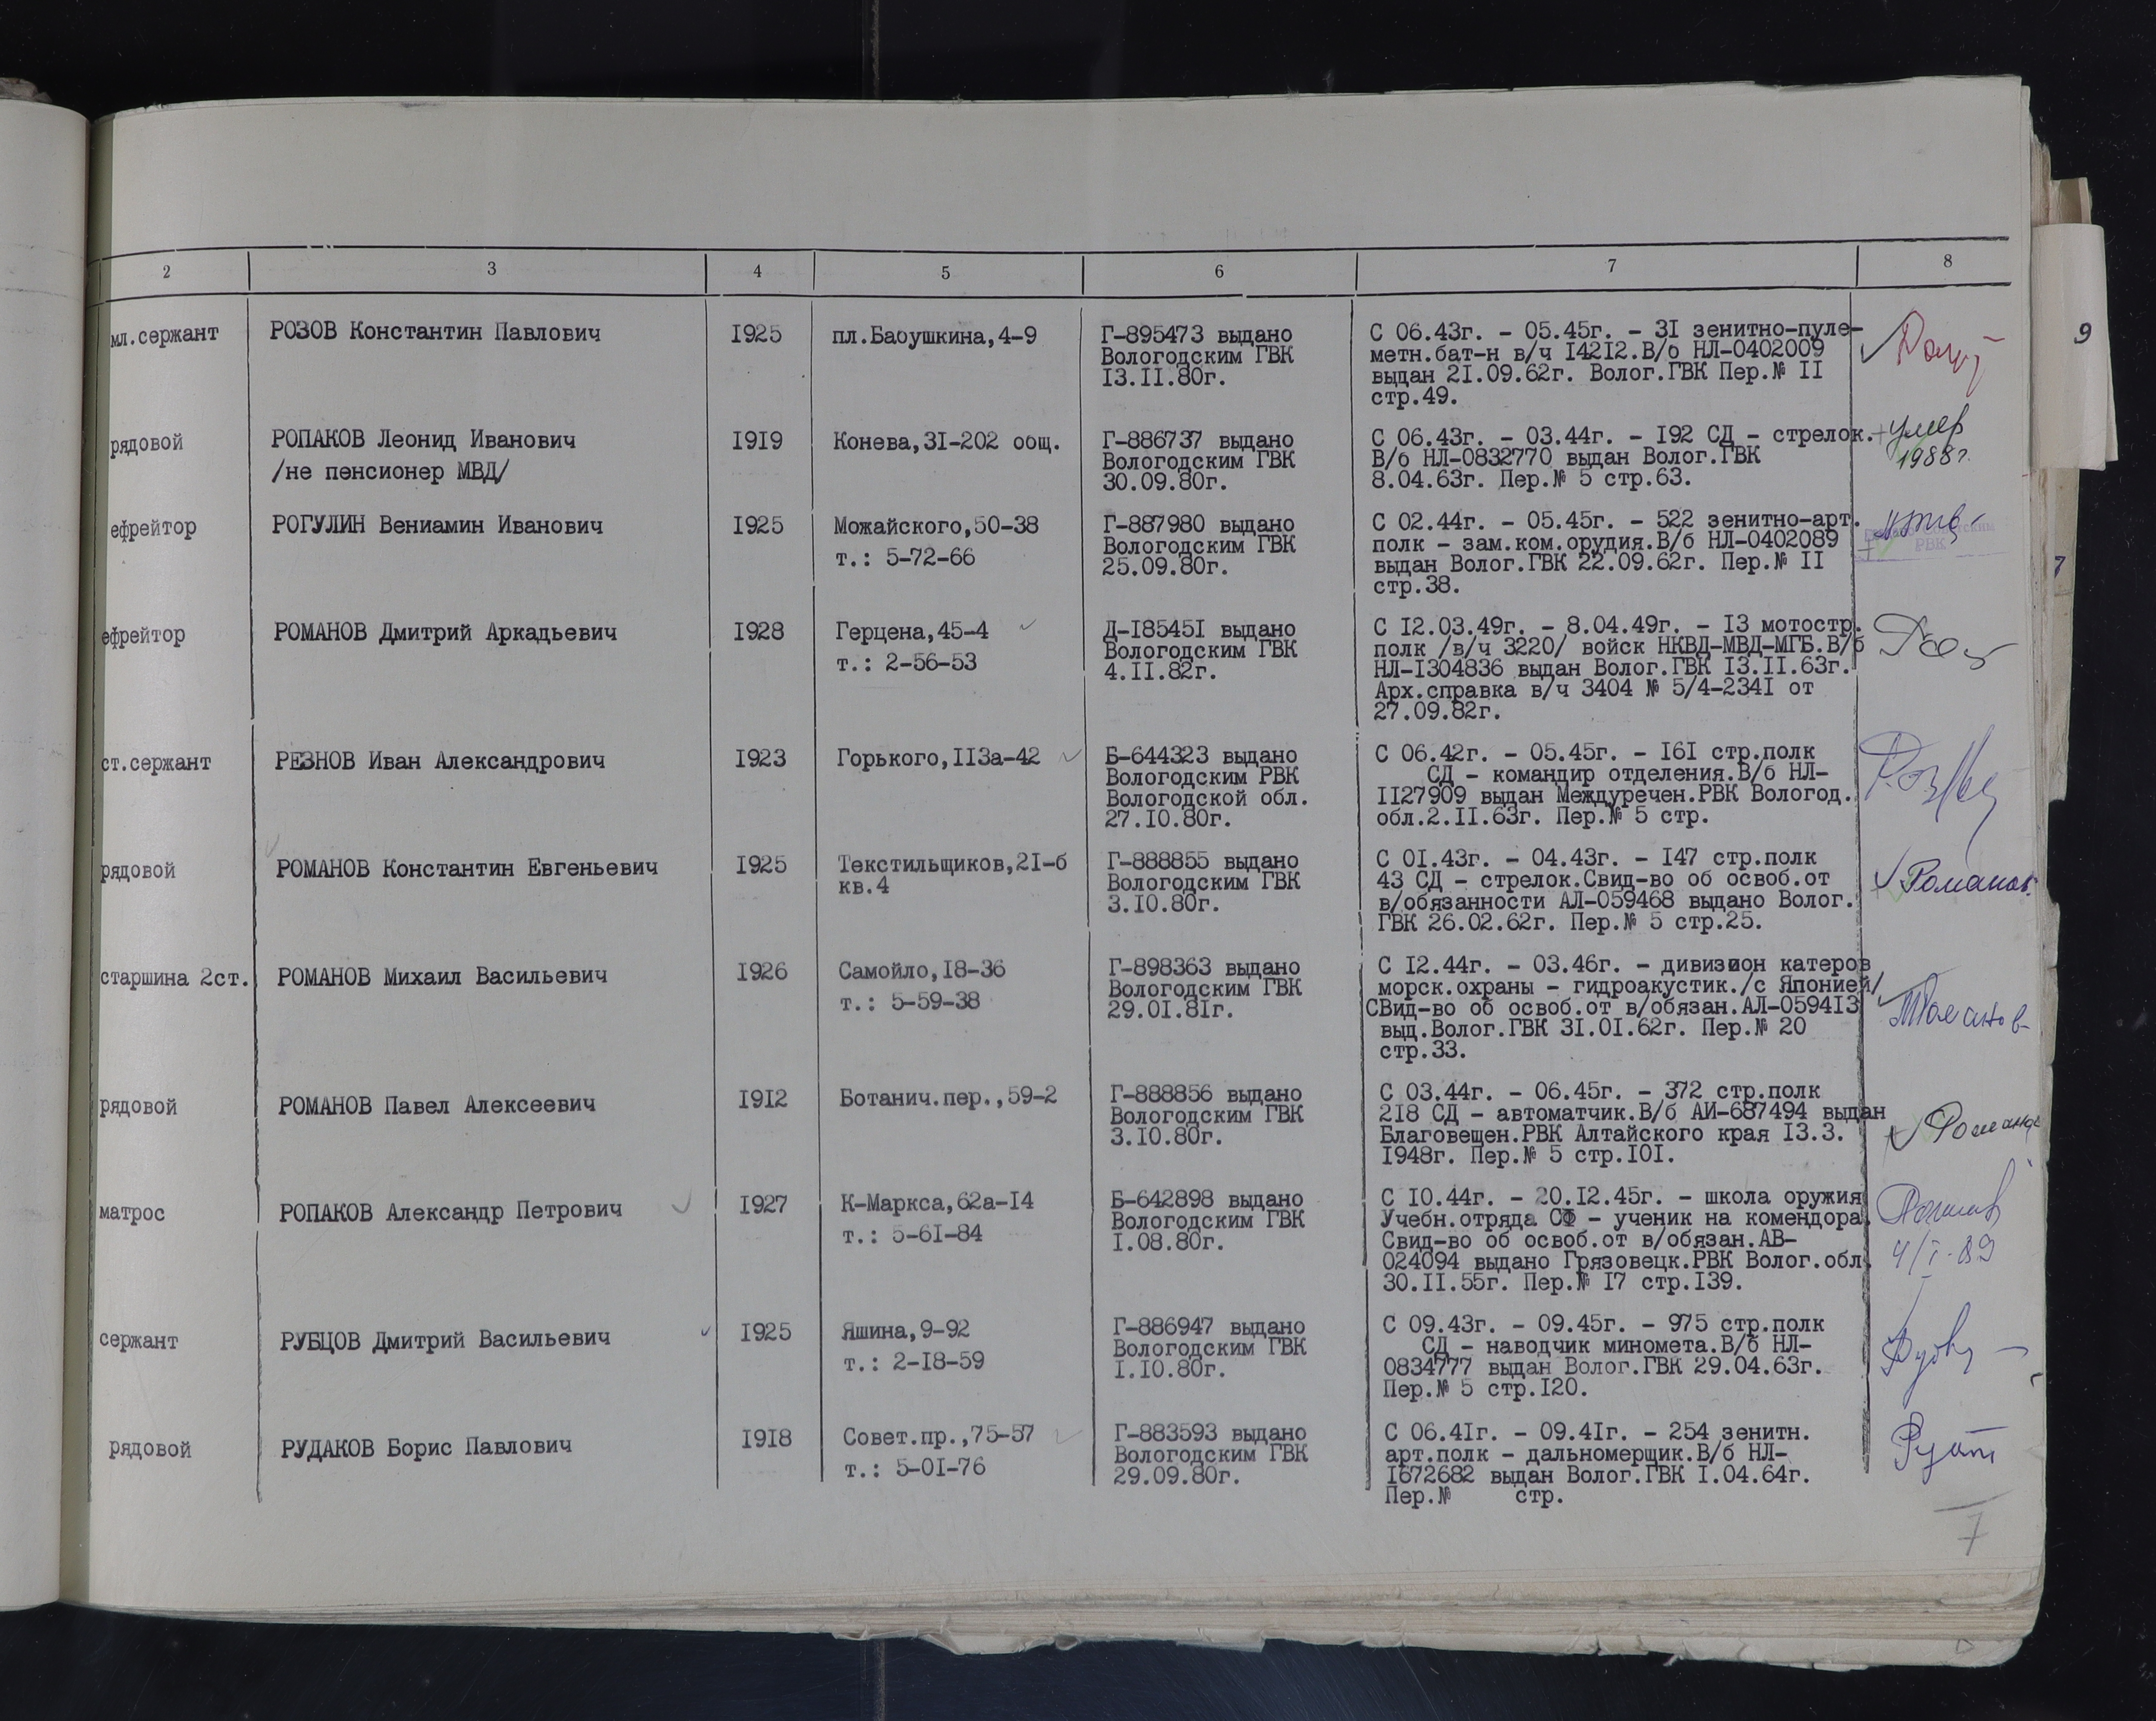 2 3 4 5 6 7 8
9
мл.сержант РОЗОВ Константин Павлович 1925 пл.Бабушкина,4-9 Г-895473 выдано С 06.43г. - 05.45г. - 31 зенитно-пуле-
Вологодским ГВК метн.бат-н в/ч 14212.В/б НЛ-0402009
13.11.80г. выдан 21.09.62г. Волог.ГВК Пер.№ 11
стр.49.
рядовой РОПАКОВ Леонид Иванович 1919 Конева,31-202 общ. Г-886737 выдано С 06.43г. - 03.44г. - 192 СД - стрелок. умер
/не пенсионер МВД/ Вологодским ГВК В/б НЛ-0832770 выдан Волог.ГВК 1988г.
30.09.80г. 8.04.63г. Пер.№ 5 стр.63.
ефрейтор РОГУЛИН Вениамин Иванович 1925 Можайского,50-38 Г-887980 выдано С 02.44г. - 05.45г. - 522 зенитно-арт.
т.: 5-72-66 Вологодским ГВК полк - зам.ком.орудия.В/б НЛ-0402089
25.09.80г. выдан Волог.ГВК 22.09.62г. Пер.№ 11
РВК
стр.38.
ефрейтор РОМАНОВ Дмитрий Аркадьевич 1928 Герцена,45-4 Д-185451 выдано С 12.03.49г. - 8.04.49г. - 13 мотостр.
т.: 2-56-53 Вологодским ГВК полк /в/ч 3220/ войск НКВД-МВД-МГБ.В/б
4.11.82г. НЛ-1304836 выдан Волог.ГВК 13.11.63г.
Арх.справка в/ч 3404 № 5/4-2341 от
27.09.82г.
ст.сержант РЕЗНОВ Иван Александрович 1923 Горького,113а-42 Б-644323 выдано С 06.42г. - 05.45г. - 161 стр.полк
Вологодским РВК СД - командир отделения.В/б НЛ-
Вологодской обл. 1127909 выдан Междуречен.РВК Вологод.
27.10.80г. обл.2.11.63г. Пер.№ 5 стр.
рядовой РОМАНОВ Константин Евгеньевич 1925 Текстильщиков,21-б Г-888855 выдано С 01.43г. - 04.43г. - 147 стр.полк
кв.4 Вологодским ГВК 43 СД - стрелок.Свид-во об освоб.от Романов
3.10.80г. в/обязанности АЛ-059468 выдано Волог.
ГВК 26.02.62г. Пер.№ 5 стр.25.
старшина 2ст. РОМАНОВ Михаил Васильевич 1926 Самойло,18-36 Г-898363 выдано С 12.44г. - 03.46г. - дивизион катеров
т.: 5-59-38 Вологодским ГВК морск.охраны - гидроакустик./с Японией/
29.01.81г. СВид-во об освоб.от в/обязан.АЛ-059413 МРоманов
выд.Волог.ГВК 31.01.62г. Пер.№ 20
стр.33.
рядовой РОМАНОВ Павел Алексеевич 1912 Ботанич.пер.,59-2 Г-888856 выдано С 03.44г. - 06.45г. - 372 стр.полк
Вологодским ГВК 218 СД - автоматчик.В/б АИ-687494 выдан Романов
3.10.80г. Благовещен.РВК Алтайского края 13.3.
1948г. Пер.№ 5 стр.101.
матрос РОПАКОВ Александр Петрович 1927 К-Маркса,62а-14 Б-642898 выдано С 10.44г. - 20.12.45г. - школа оружия
т.: 5-61-84 Вологодским ГВК Учебн.отряда СФ - ученик на комендора.
1.08.80г. Свид-во об освоб.от в/обязан.АВ- 4/I-89
024094 выдано Грязовецк.РВК Волог.обл.
30.11.55г. Пер.№ 17 стр.139.
сержант РУБЦОВ Дмитрий Васильевич 1925 Яшина,9-92 Г-886947 выдано С 09.43г. - 09.45г. - 975 стр.полк
т.: 2-18-59 Вологодским ГВК СД - наводчик миномета.В/б НЛ-
1.10.80г. 0834777 выдан Волог.ГВК 29.04.63г.
Пер.№ 5 стр.120.
рядовой РУДАКОВ Борис Павлович 1918 Совет.пр.,75-57 Г-883593 выдано С 06.41г. - 09.41г. - 254 зенитн.
т.: 5-01-76 Вологодским ГВК арт.полк - дальномерщик.В/б НЛ-
29.09.80г. 1672682 выдан Волог.ГВК 1.04.64г.
Пер.№ стр.
7